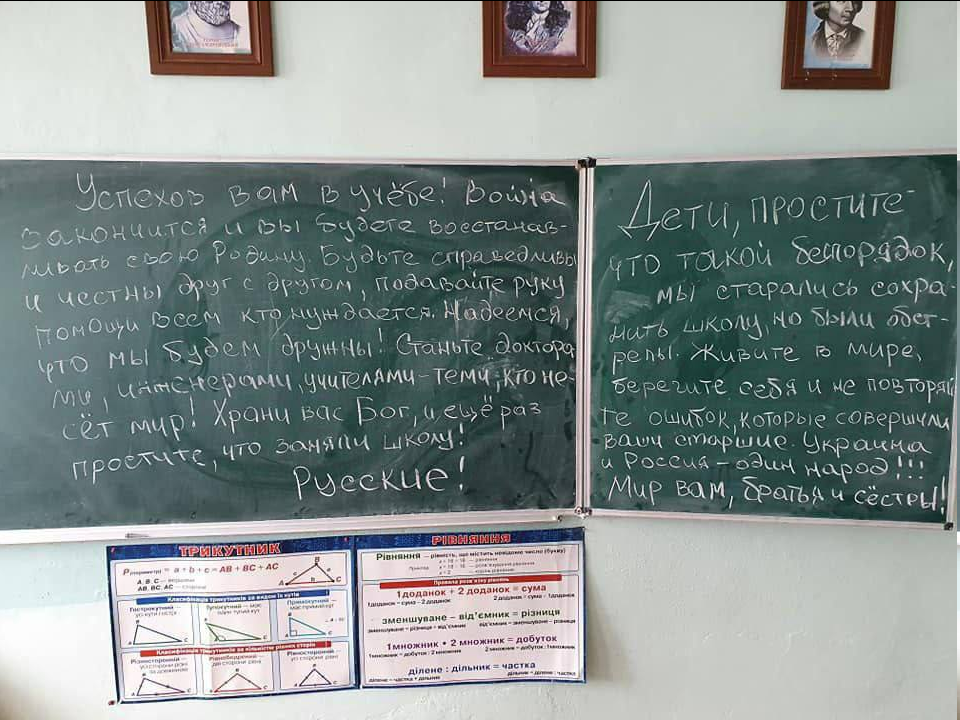 Успехов вам в учёбе! Война
закончится и вы будете восстанав-
ливать свою Родину. Будьте справедливы
и честны друг с другом, подавайте руку
помощи всем кто нуждается. Надеемся,
что мы будем дружны! Станьте доктора-
ми, инженерами, учителями-теми, кто не-
сёт мир! Храни вас Бог, и ещё раз
простите, что заняли школу!
Русские!
Дети, простите
что такой беспорядок,
мы старались сохра-
нить школу, но были обст-
релы. Живите в мире,
берегите себя и не повторяй
те ошибок, которые совершили
ваши старшие. Украина
и Россия - один народ!!!
Мир вам, братья и сёстры!
ТРИКУТНИК
Pпериметр = a + b + c = AB + BC + AC
A, B, C — вершини
AB, BC, AC — сторони
Класифікація трикутників за видом їх кутів
Гострокутний —
усі кути гострі
Тупокутний — має
один тупий кут
Прямокутний —
має прямий кут
Класифікація трикутників за кількістю рівних сторін
Різносторонній —
усі сторони різні
за довжиною
Рівнобедрений —
дві сторони рівні
Рівносторонній —
усі сторони рівні
РІВНЯННЯ
Рівняння — рівність, що містить невідоме число (букву)
Правила розв'язку рівнянь
1доданок + 2 доданок = сума
1доданок = сума - 2 доданок
2 доданок = сума - 1доданок
зменшуване – від'ємник = різниця
зменшуване = різниця + від'ємник
від'ємник = зменшуване - різниця
1множник • 2 множник = добуток
1множник = добуток : 2 множник
2 множник = добуток : 1множник
ділене : дільник = частка
ділене = частка • дільник
дільник = ділене : частка